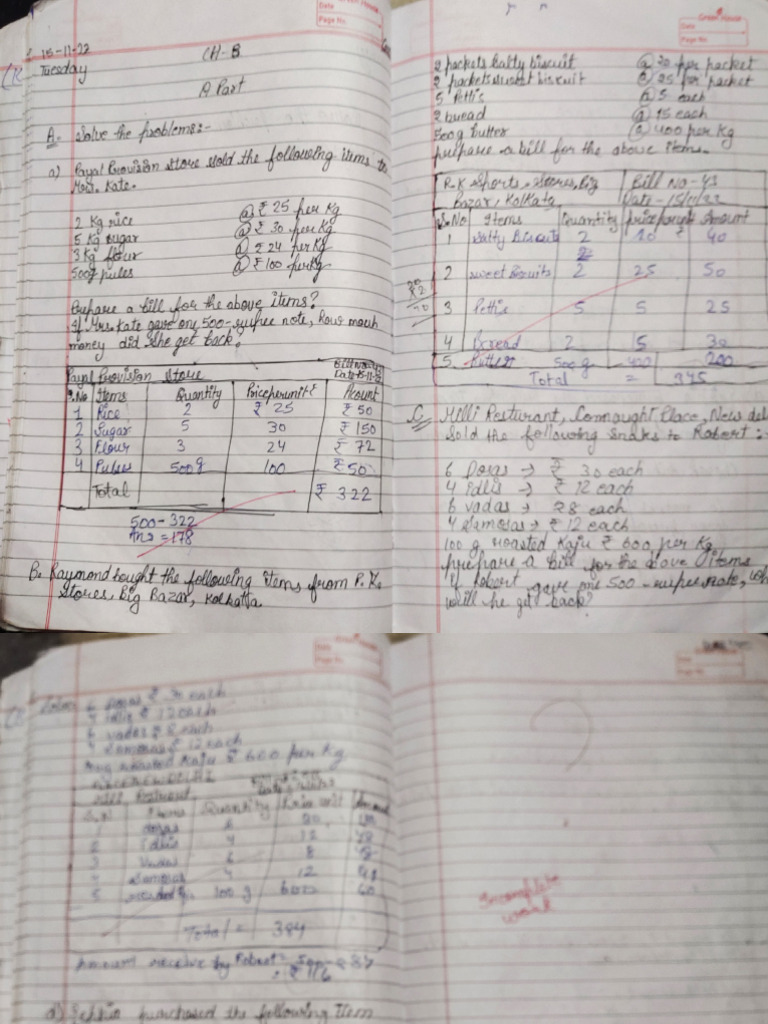 15-11-22
CH-8
Tuesday
A Part
A. Solve the problems:-
a) Payal Provision store sold the following items to
Mrs. Kate.
2 Kg rice @ ₹ 25 per Kg
5 Kg sugar @ ₹ 30 per Kg
3 Kg flour @ ₹ 24 per Kg
500g pules @ ₹ 100 per Kg
Prepare a bill for the above items?
If Mrs. Kate gave one 500-rupee note, how much
money did she get back?
Payal Provision store
S.No Items Quantity Price per unit ₹ Amount
1 Rice 2 ₹ 25 ₹ 50
2 Sugar 5 30 ₹ 150
3 Flour 3 24 ₹ 72
4 Pules 500g 100 ₹ 50
Total ₹ 322
500-322
Ans = 178
B. Raymond bought the following items from P. K.
stores, Big Bazar, Kolkatta
Green House
Date
Page No.
2 packets salty biscuit @ 20 per packet
2 packets sweet biscuit @ 25 per packet
5 Pettis @ 5 each
2 bread @ 15 each
500g butter @ 400 per Kg
prepare a bill for the above items.
P.K Sports, Stores, Big Bill No-43
Bazar, Kolkata
S.No Items Quantity price per unit Amount
1 Salty Biscuits 2 40
2 sweet biscuits 2 25 50
3 Pettis 5 5 25
4 Bread 2 15 30
5. Butter 500g 400 200
Total = 345
C. Milli Resturant, Connaught Place, New del
sold the following snaks to Robert:-
6 Dosas → ₹ 30 each
4 Idlis → ₹ 12 each
6 vadas → ₹8 each
4 Samosas → ₹ 12 each
100 g roasted Kaju ₹ 600 per Kg
prepare a bill for the above items
If Robert gave one 500-rupee note, wh
will he get back?
6 Dosas ₹ 30 each
4 Idlis ₹ 12 each
6 vadas ₹ 8 each
4 Samosas ₹ 12 each
roasted Kaju ₹ 600 per Kg
S.N Items Quantity
1 dosas
2 Idlis 4 12
3 Vadas 6 8
4 Samosas 4 12
5 100 g 600 60
Total = 384
Amount receive by Robert =
d) purchased the following Item
Incomplete
work